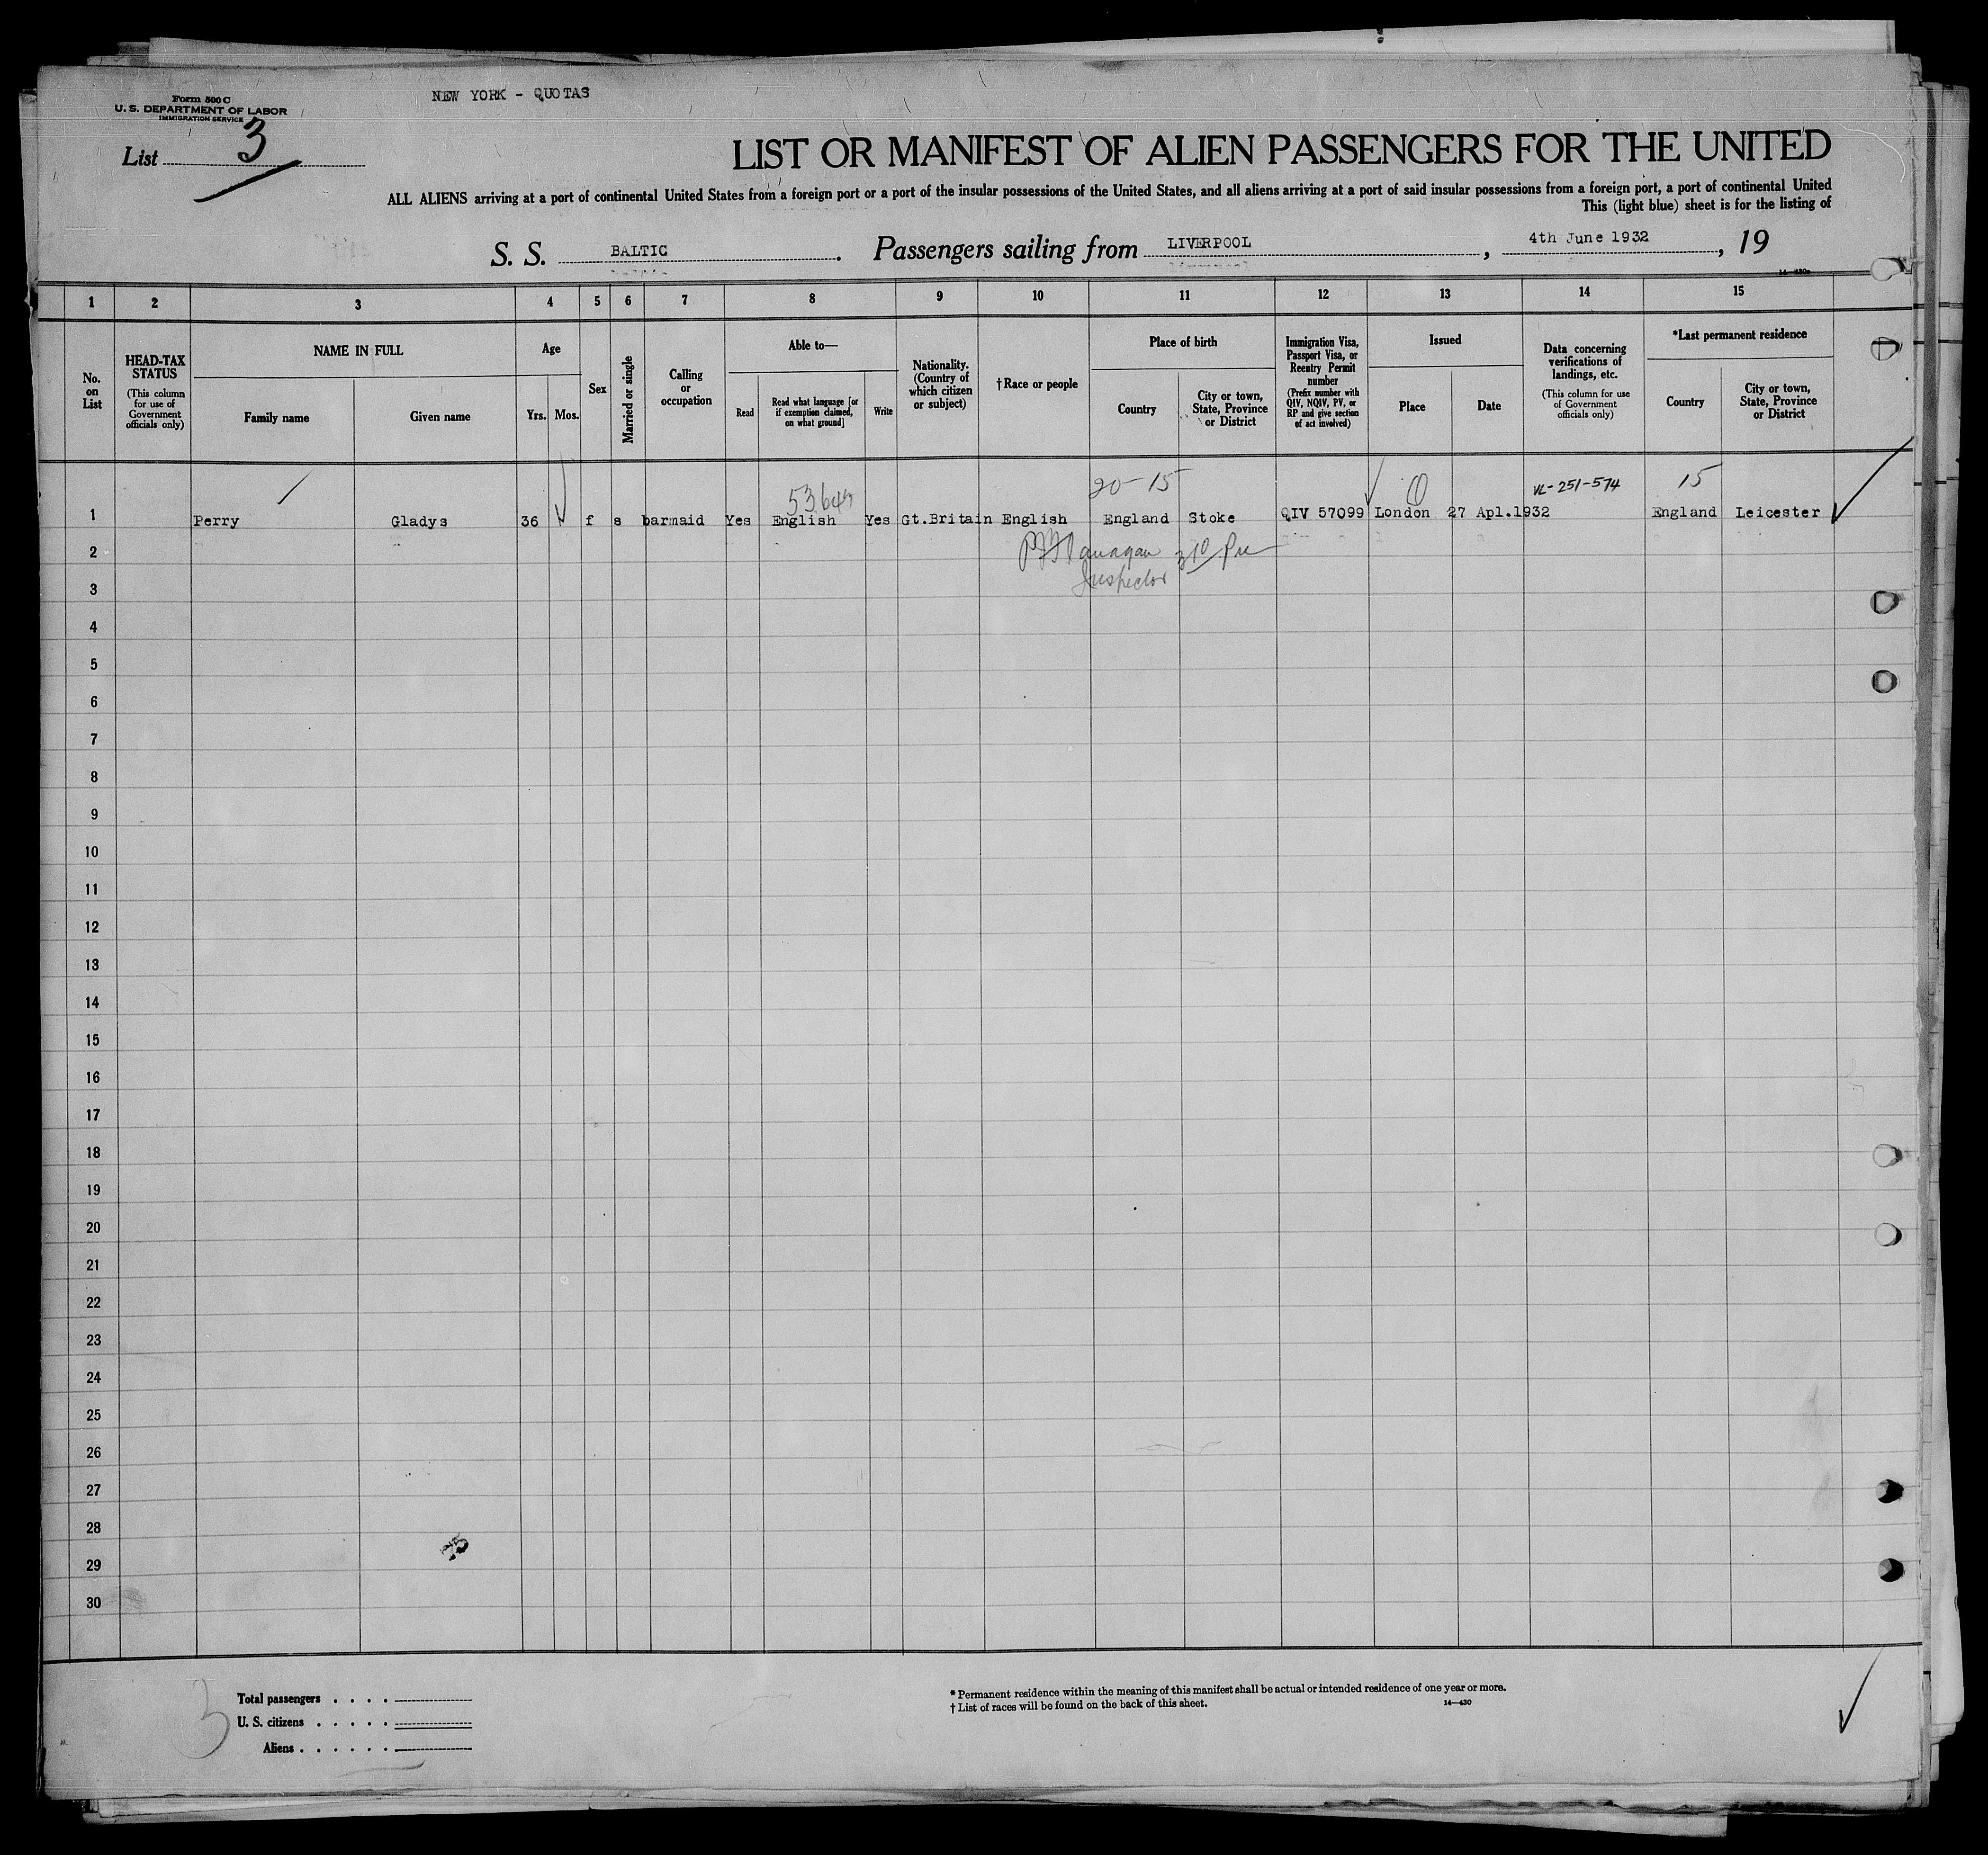 Form 500 C
U. S. DEPARTMENT OF LABOR
IMMIGRATION SERVICE
NEW YORK - QUOTAS
List 3
LIST OR MANIFEST OF ALIEN PASSENGERS FOR THE UNITED
ALL ALIENS arriving at a port of continental United States from a foreign port or a port of the insular possessions of the United States, and all aliens arriving at a port of said insular possessions from a foreign port, a port of continental United
This (light blue) sheet is for the listing of
S. S. BALTIC. Passengers sailing from LIVERPOOL, 4th June 1932, 19
14—430a
1 2 3 4 5 6 7 8 9 10 11 12 13 14 15
No. on List
HEAD-TAX STATUS
(This column for use of Government officials only)
NAME IN FULL
Family name
Given name
Age
Yrs.
Mos.
Sex
Married or single
Calling or occupation
Able to—
Read
Read what language [or if exemption claimed, on what ground]
Write
Nationality. (Country of which citizen or subject)
†Race or people
Place of birth
Country
City or town, State, Province or District
Immigration Visa, Passport Visa, or Reentry Permit number
(Prefix number with QIV, NQIV, PV, or RP and give section of act involved)
Issued
Place
Date
Data concerning verifications of landings, etc.
(This column for use of Government officials only)
*Last permanent residence
Country
City or town, State, Province or District
20-15
VL-251-574
15
1 Perry Gladys 36 f s barmaid Yes English Yes Gt.Britain English England Stoke QIV 57099 London 27 Apl.1932 England Leicester
2
Inspector
3
4
5
6
7
8
9
10
11
12
13
14
15
16
17
18
19
20
21
22
23
24
25
26
27
28
29
30
3
Total passengers . . . .
U. S. citizens . . . . .
Aliens . . . . . .
* Permanent residence within the meaning of this manifest shall be actual or intended residence of one year or more.
† List of races will be found on the back of this sheet.
14—430